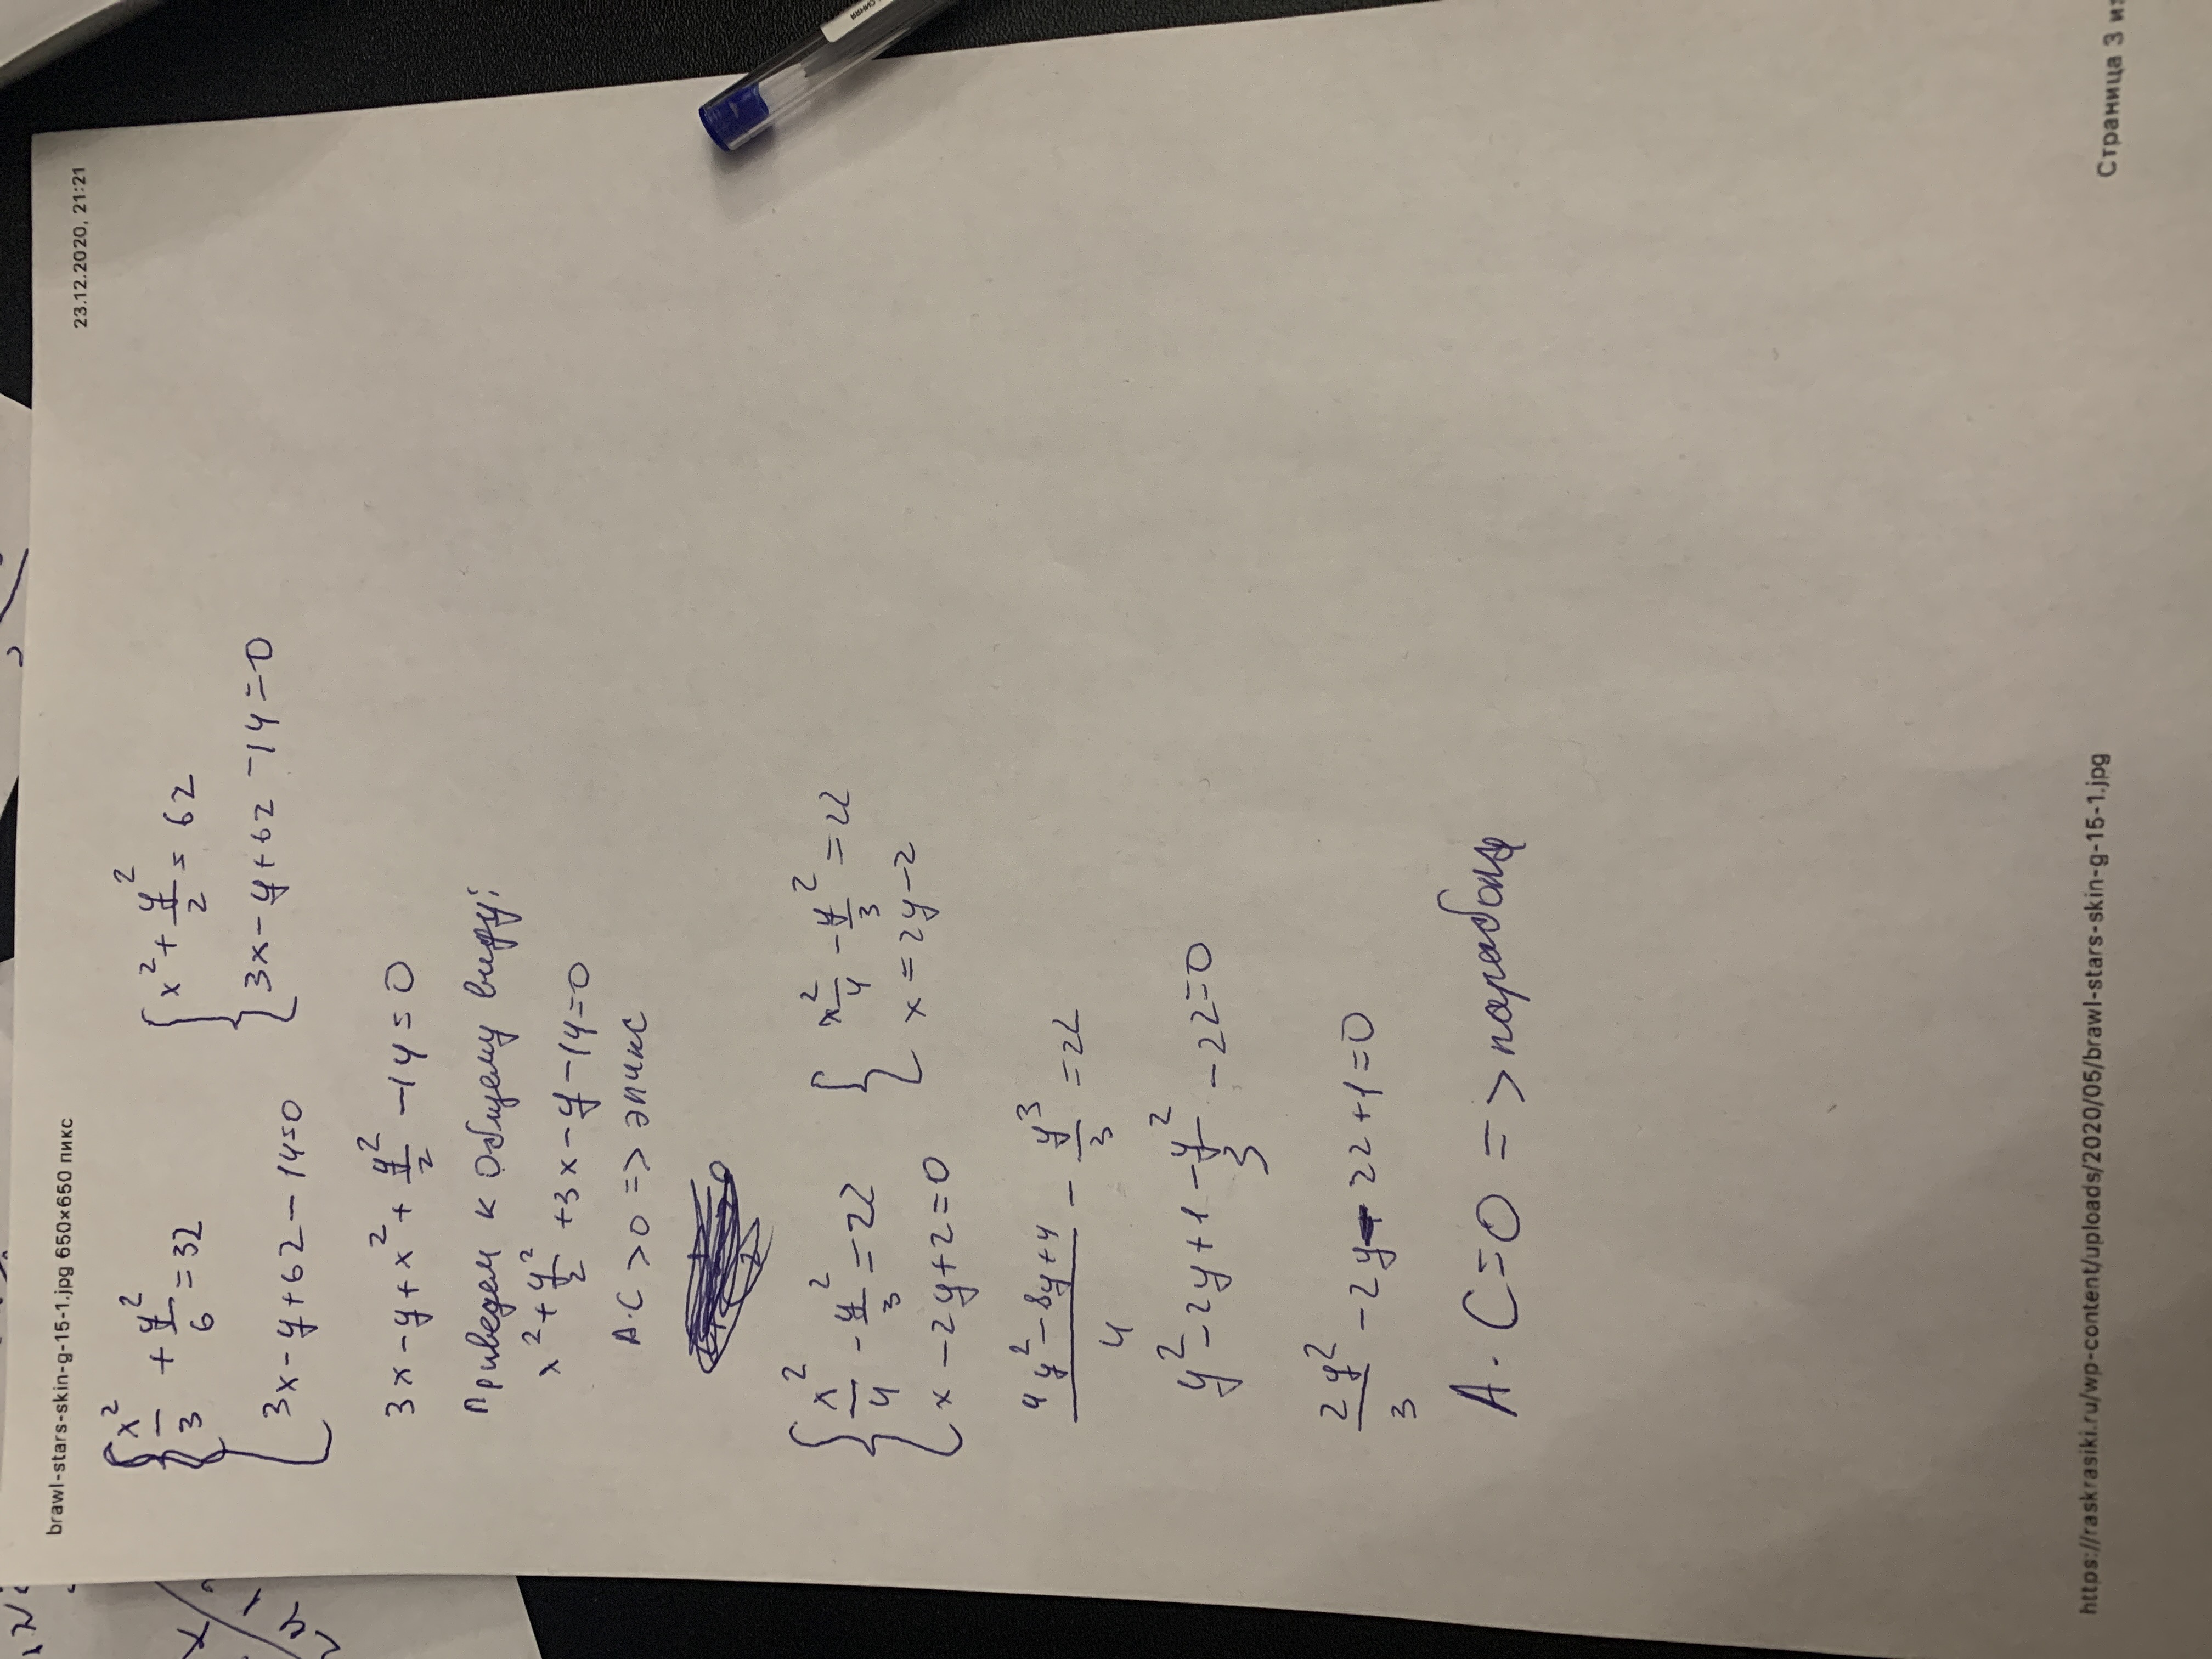 brawl-stars-skin-g-15-1.jpg 650×650 пикс
23.12.2020, 21:21
x²/3 + y²/6 = 3z
3x - y + 6z - 14 = 0
x² + y²/2 = 6z
3x - y + 6z - 14 = 0
3x - y + x² + y²/2 - 14 = 0
Приведем к общему виду:
x² + y²/2 + 3x - y - 14 = 0
A·C > 0 => эпипс
x²/4 - y²/3 = 2z
x - 2y + 2 = 0
x²/4 - y²/3 = 2z
x = 2y - 2
(4y² - 8y + 4)/4 - y³/3 = 2z
y² - 2y + 1 - y²/3 - 2z = 0
2y²/3 - 2y - 2z + 1 = 0
A · C = 0 => парабола
https://raskrasiki.ru/wp-content/uploads/2020/05/brawl-stars-skin-g-15-1.jpg
Страница 3 из